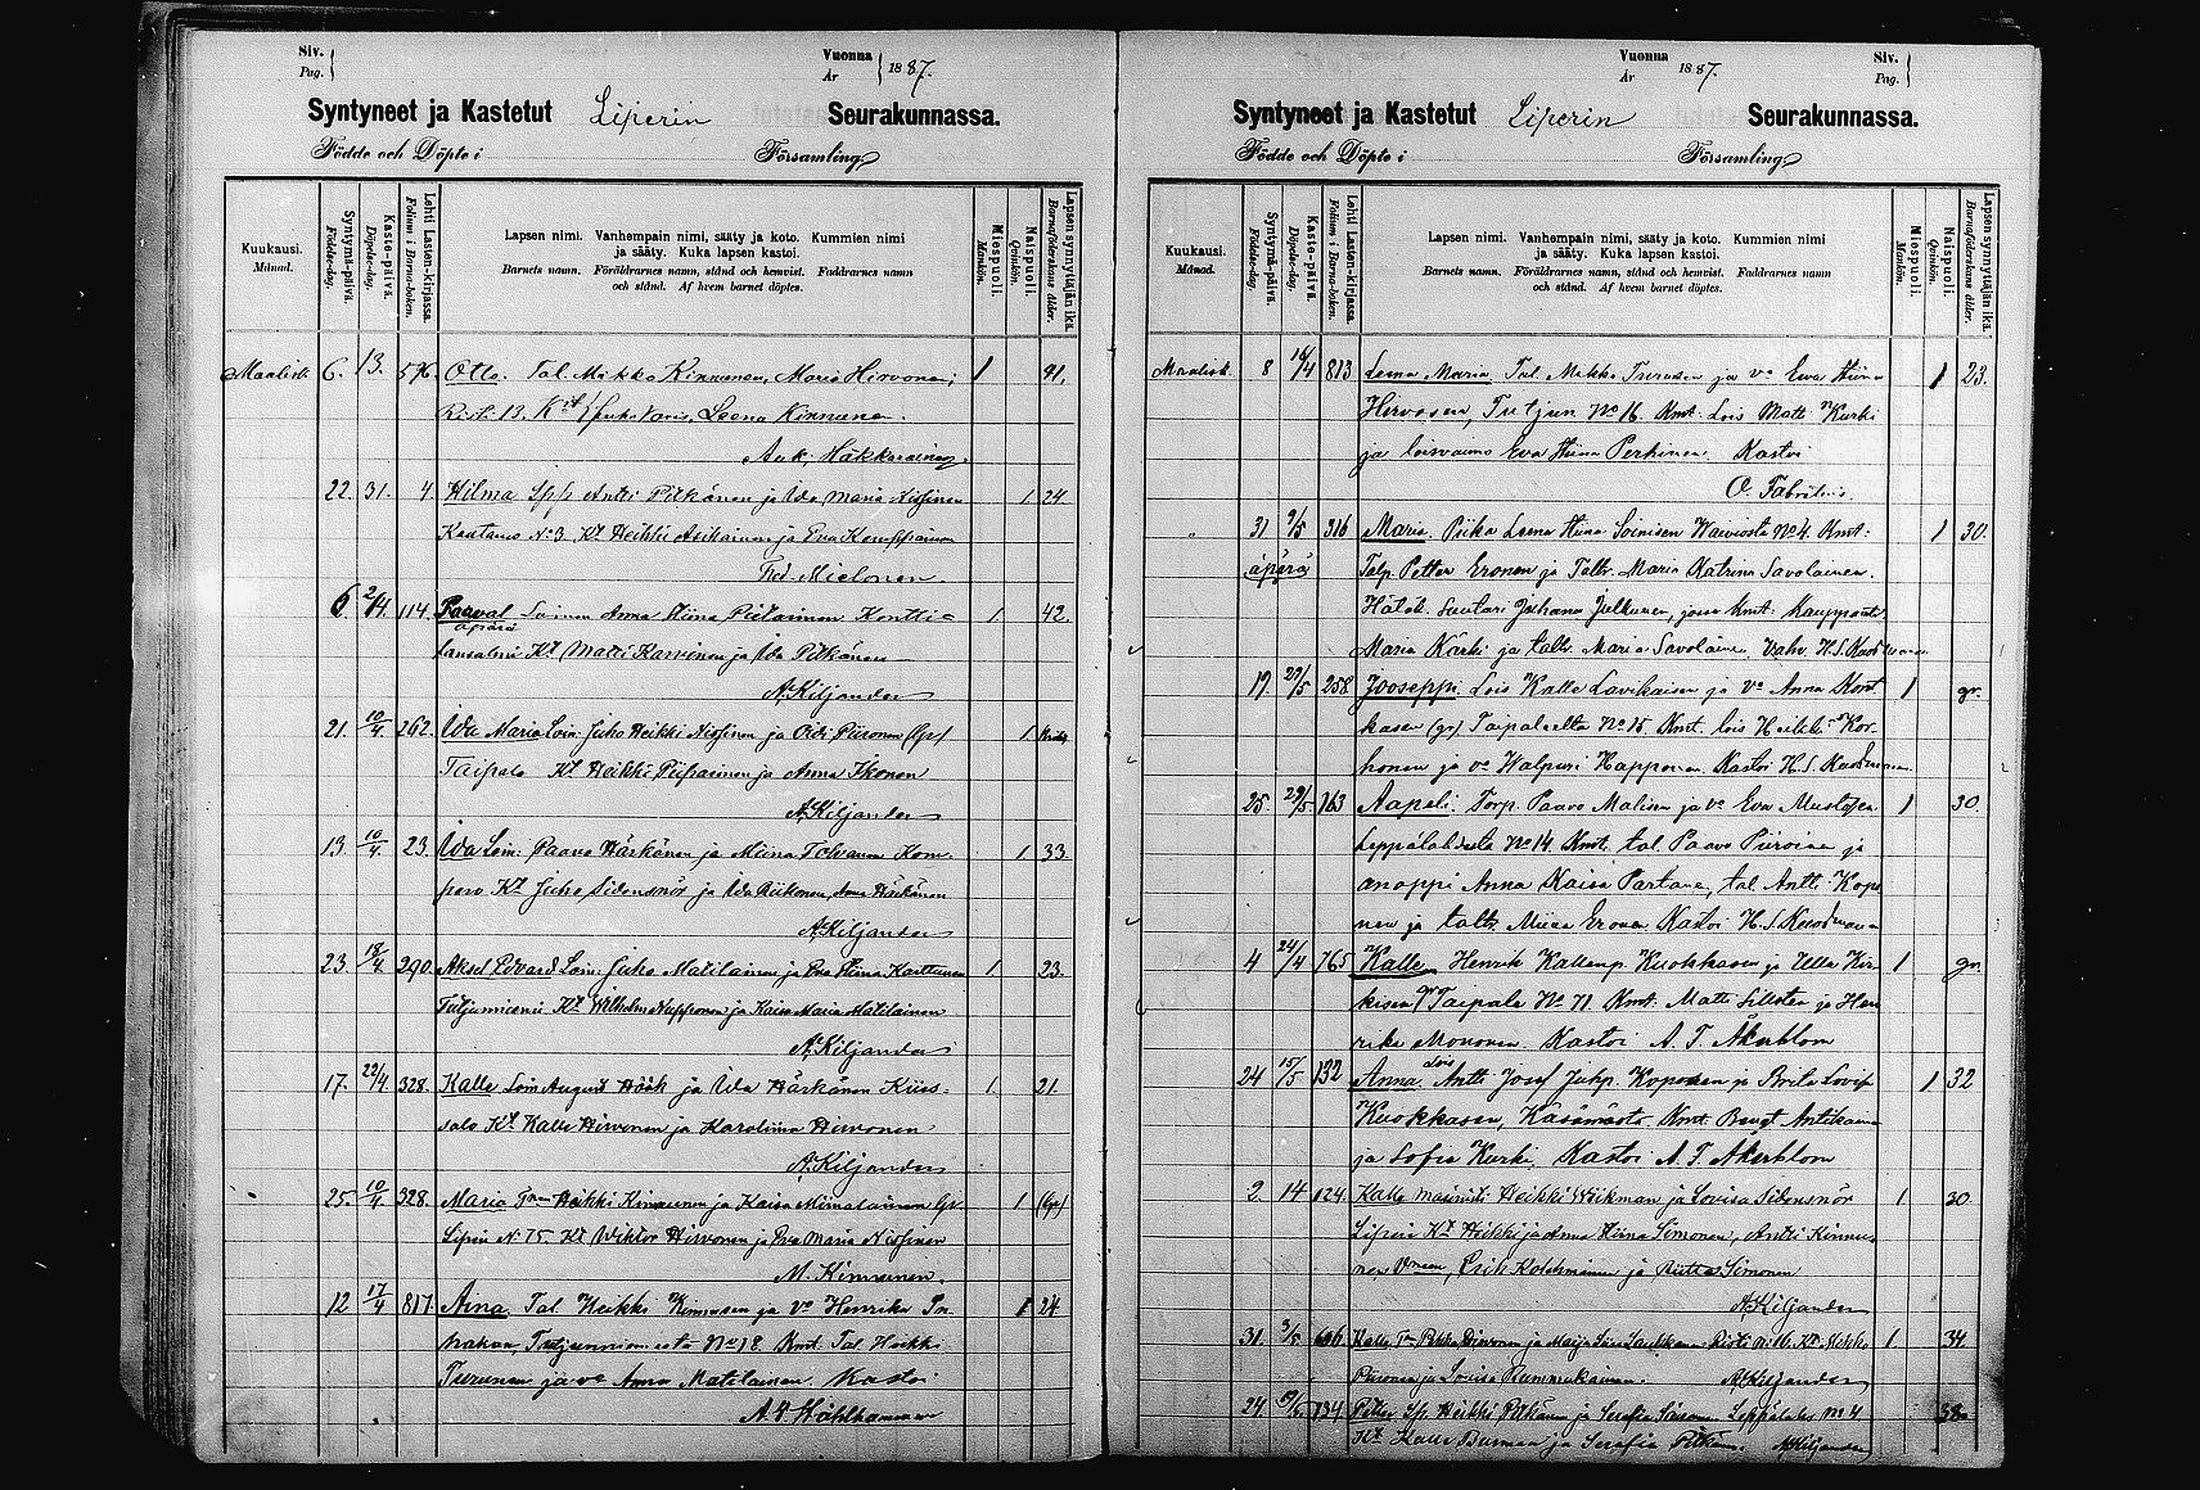 Siv. Pag.
Vuonna År 1887.
Syntyneet ja Kastetut Liperin Seurakunnassa.
Födde och Döpte i Församling
Kuukausi. Månad.
Syntymä-päivä. Födelse-dag.
Kaste-päivä. Döpelse-dag.
Lehti Lasten-kirjassa. Folium i Barna-boken.
Lapsen nimi. Vanhempain nimi, sääty ja koto. Kummien nimi
ja sääty. Kuka lapsen kastoi.
Barnets namn. Föräldrarnes namn, stånd och hemvist. Faddrarnes namn
och stånd. Af hvem barnet döptes.
Miespuoli. Mankön.
Naispuoli. Qvinkön.
Lapsen synnyttäjän ikä. Barnaföderskans ålder.
Maalisk. 6. 13. 596. Otto. Tal. Mikko Kinnunen, Maria Hirvonen; 1 41.
Risti 13. Leena Kinnunen.
Auk. Häkkarainen
22. 31. 4 Hilma Antti Pitkänen ja Ida Maria Nissinen 1 24
Kaatamo No 3 Kt Heikki Asikainen ja Eva Kemppainen
Fred. Mielonen.
6. 2/4 114. Paaval Loinen Anna Stiina Pietarinen Kontti= 1. 42.
äpärä
lansalmi Kt Matti Karvinen ja Ida Pitkänen
A. Kiljander
21. 10/4. 262. Ida Maria Loin. Juho Heikki Nissinen ja Piironen (gr) 1.
Taipale Kt Heikki Piipainen ja Anna Ikonen
A. Kiljander
13 10/4. 23. Ida Loin: Paavo Härkönen ja Miina Tolvanen Kom- 1 33.
pero Kt Juho Sidensnör ja Ida Riikonen, Anna Härkönen
A. Kiljander
23. 18/4. 290. Aksel Edvard Loin: Juho Matilainen ja Eva Stiina Karttunen 1. 23.
Tutjunniemi Kt Wilhelm Nupponen ja Kaisa Maria Matilainen
A. Kiljander
17. 22/4. 328. Kalle Loin August Höök ja Ida Härkönen Kiis= 1. 21.
salo Kt Kalle Hirvonen ja Karoliina Hirvonen
A. Kiljander
25. 10/4. 328. Maria Heikki Kinnunen ja Kaisa Miinalainen 1 (gr)
Liperi No 75. Kt Wiktor Hirvonen ja Eva Maria Nissinen
M. Kinnunen.
12 17/4 817. Aina. Tal. Heikki Kinnusen ja vo Henrika Pu 1 24.
hakan, Tutjunniemestä No 18. Kmt. Tal. Heikki
Turunen ja vo Anna Matilainen. Kastoi
A. W. Ståhlhammar
Siv. Pag.
Vuonna År 1887.
Syntyneet ja Kastetut Liperin Seurakunnassa.
Födde och Döpte i Församling
Kuukausi. Månad.
Syntymä-päivä. Födelse-dag.
Kaste-päivä. Döpelse-dag.
Lehti Lasten-kirjassa. Folium i Barna-boken.
Lapsen nimi. Vanhempain nimi, sääty ja koto. Kummien nimi
ja sääty. Kuka lapsen kastoi.
Barnets namn. Föräldrarnes namn, stånd och hemvist. Faddrarnes namn
och stånd. Af hvem barnet döptes.
Miespuoli. Mankön.
Naispuoli. Qvinkön.
Lapsen synnyttäjän ikä. Barnaföderskans ålder.
Maalisk. 8 16/4 813 Leena Maria. Tal. Mikko Turusen ja vo Eva Stiina 1 23.
Hirvosen, Tutjun No 16. Kmt: Lois Matti Kurki
ja loisvaimo Eva Stiina Perhinen. Kastoi
O. Fabritius.
" 31 9/5 316 Maria. Piika Leena Stiina Soinisen Waiviosta No 4. Kmt: 1 30.
äpärä Talp. Petter Eronen ja Taltr. Maria Katrina Savolainen.
Hätäk. Suutari Juhana Julkunen, jossa Kmt:
Maria Kärki ja taltr. Maria Savolainen. Vahv. H. S. Kuosmanen
19. 29/5 258 Jooseppi. Lois Kalle Lavikaisen ja vo Anna Kont 1 gr.
kasen (gr) Taipaleelta No 15. Kmt. lois Heikki Kor-
honen ja vo Walpuri Kapponen. Kastoi H. S. Kuosmanen
25. 29/5 163 Aapeli. Torp. Paavo Malisen ja vo Eva Mustosen 1 30.
Leppälahdesta No 14. Kmt. tal. Paavo Piiroinen ja
anoppi Anna Kaisa Partanen, tal. Antti Kopo
nen ja taltr. Miina Eronen. Kastoi H. S. Kuosmanen
4 24/4 765 Kalle Henrik Kallenp. Kuokkasen ja Ulla Kir 1 gr.
kisen gr Taipale No 71. Kmt: Matti Sillsten ja Hen
rika Mononen. Kastoi A. T. Åkerblom
24 15/5 132 Anna. Lois Antti Josef Juhp. Koponen ja Brita Lovisa 1 32
Kuokkasen, Käsämästä. Kmt. Bengt Antikainen
ja Sofia Kurki. Kastoi A. T. Åkerblom
2. 14 124. Kalle Masinisti Heikki Wikman ja Lovisa Sidensnör 1. 30
Liperi Kt Heikki ja Anna Stiina Simonen, Antti Kinnu
nen, Erik Kolehmainen ja Riitta Simonen
A. Kiljander
31. 3/5 606 Kalle Pekka Hirvonen ja Maija Liisa Laukkanen Risti No 16. Kt. Mikko 1. 34.
Piironen ja Lovisa Rummukainen. A. Kiljander
24. 134 Petter Heikki Pitkänen ja Serafia Leppälahti No 4 38
Kt Kalle Burman ja Serafia Pitkänen. A. Kiljander